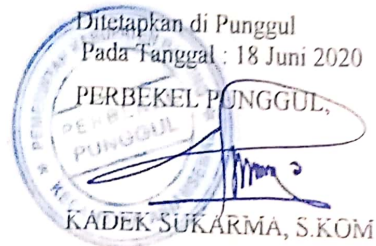 Ditetapkan di Punggul
Pada Tanggal : 18 Juni 2020
PERBEKEL PUNGGUL,
PERBEKEL
PUNGGUL
KADEK SUKARMA, S.KOM